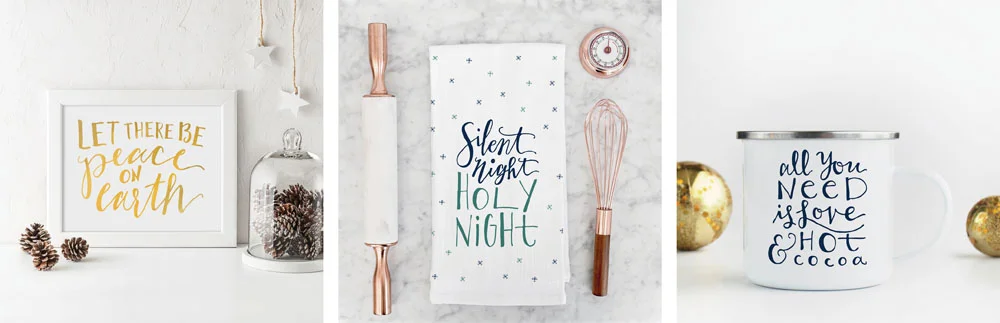 LET THERE BE
peace
ON
earth
Silent
night
HOLY
NiGHT
all You
NEED
is Love
& HOT
cocoa